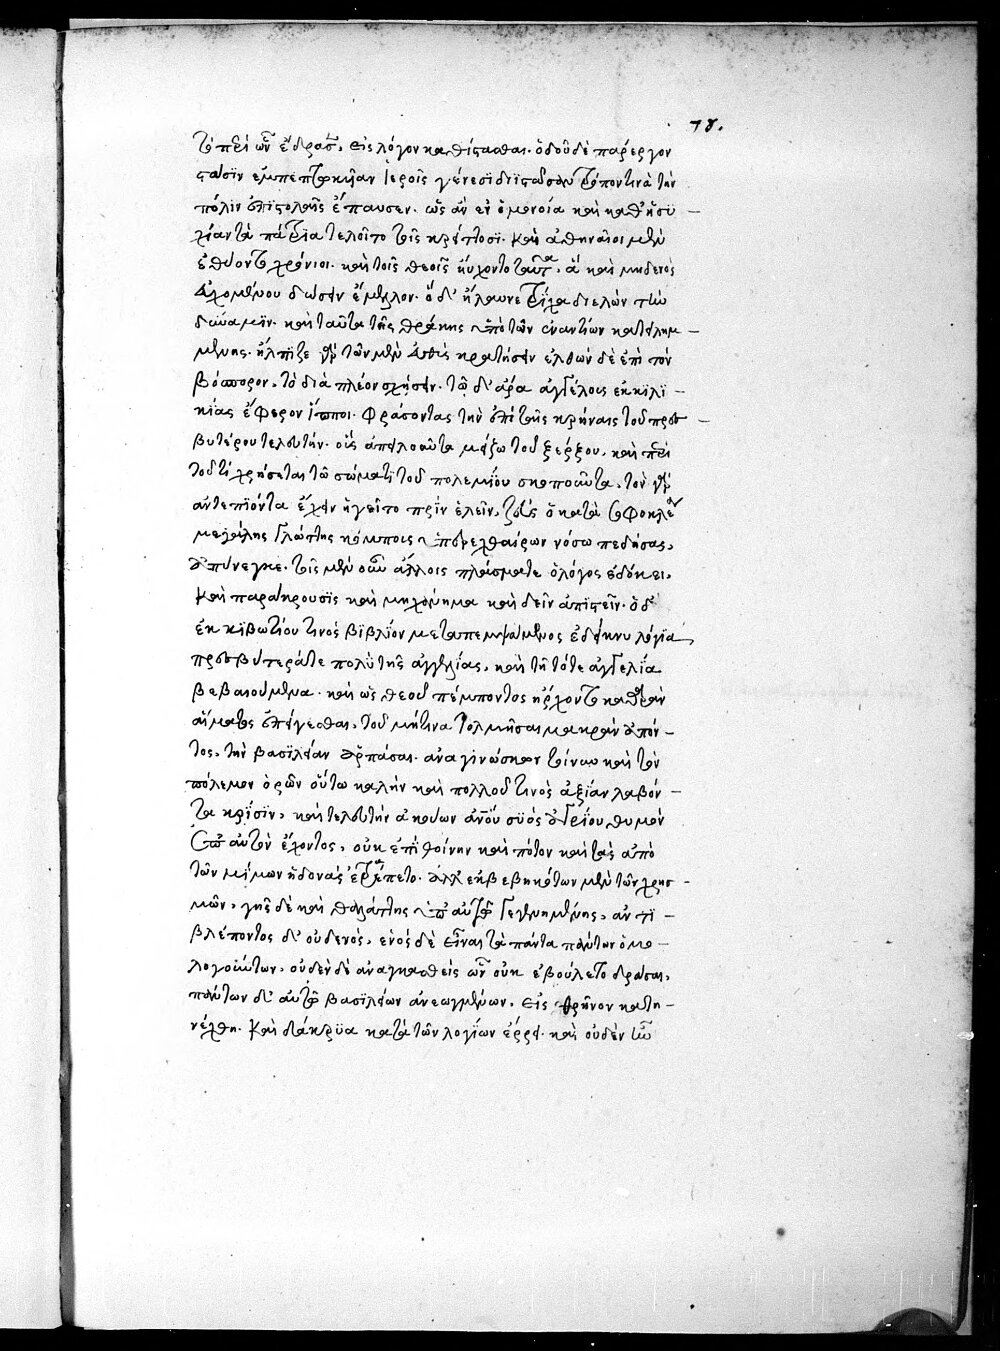 78.
τὸ περὶ ὧν ἔδρασε, εἰς λόγον καθίστασθαι. ὁδοῦ δὲ πάρεργον
στάσιν ἐμπεπτωκυῖαν ἱεροῖς γένεσι διϊστᾶσαν τρόπον τινὰ τὴν
πόλιν ἐπιστολαῖς ἔπαυσεν. ὡς ἂν ἐν ὁμονοία καὶ καθ' ἡσυ –
χίαν τὰ πάτρια τελοῖτο τοῖς κρείττοσι. καὶ ἀθηναῖοι μὲν
ἔθυον τῷ χρόνιοι. καὶ τοῖς θεοῖς ηὔχοντο ταῦτα, ἃ καὶ μηδενὸς
εὐχομένου δώσειν ἔμελλον. ὁ δ' ἤλαυνε τρίχα διελὼν τὴν
δύναμιν. καὶ ταῦτα τῆς θράκης ὑπὸ τῶν ἐναντίων κατειλημ –
μένης. ἤλπιζε γὰρ τῶν μὲν εὐθὺς κρατήσειν ἐλθὼν δὲ ἐπὶ τὸν
βόσπορον, τὸ διὰ πλέον σχήσειν. τῷ δ' ἄρα ἀγγέλους ἐκ κιλι –
κίας ἔφερον ἵπποι. φράσοντας τὴν ἐπὶ ταῖς κρήναις τοῦ πρεσ –
βυτέρου τελευτήν. οἷς ἀπειλοῦντα μείζω τοῦ ξέρξου, καὶ περὶ
τοῦ τί χρήσεται τῷ σώματι τοῦ πολεμίου σκοποῦντα, τὸν γὰρ
ἀντεπιόντα ἔχειν ἡγεῖτο πρὶν ἑλεῖν, ζεὺς ὁ κατὰ σοφοκλέα
μεγάλης γλώττης κόμποις ὑπερεχθαίρων νόσω πεδήσας,
ἀπήνεγκε. τοῖς μὲν οὖν ἄλλοις πλάσμα τε ὁ λόγος ἐδόκει,
καὶ παράκρουσις καὶ μηχάνημα καὶ δεῖν ἀπιστεῖν. ὁ δ'
ἐκ κιβωτίου τινὸς βιβλίον μεταπεμψάμενος ἐδείκνυ λόγια
πρεσβύτερά τε πολὺ τῆς ἀγγελίας, καὶ τῇ τότε ἀγγελία
βεβαιούμενα. καὶ ὡς θεοῦ πέμποντος ἤρχοντο καθαρὰν
αἵματος ἐπείγεσθαι, τοῦ μήτινα τολμῆσαι μακρὰν ἀπόν –
τος, τὴν βασιλείαν ἁρπάσαι. ἀναγινώσκων τοίνυν καὶ τὸν
πόλεμον ὁρῶν οὕτω καλὴν καὶ πολλοῦ τινὸς ἀξίαν λαβόν –
τα κρίσιν, καὶ τελευτὴν ἀκούων ἀνοῦ συὸς ἀγρίου θυμὸν
ἐπ' αὐτὸν ἔχοντος, οὐκ ἐπὶ θοίνην καὶ πότον καὶ τὰς ἀπὸ
τῶν μίμων ἡδονὰς ἐτράπετο. ἀλλ' ἐκβεβηκότων μὲν τῶν χρησ –
μῶν, γῆς δὲ καὶ θαλάττης ὑπ' αὐτῷ γεγενημένης, ἀντι –
βλέποντος δ' οὐδενὸς, ἑνὸς δὲ εἶναι τὰ πάντα πάντων ὁμο –
λογούντων, οὐδὲν δὲ ἀναγκασθεὶς ὧν οὐκ ἐβούλετο δρᾶσαι,
πάντων δ' αὐτῷ βασιλείων ἀνεωγμένων, εἰς θρῆνον κατη –
νέχθη. καὶ δάκρυα κατὰ τῶν λογίων ἔρρει. καὶ οὐδὲν ἦν